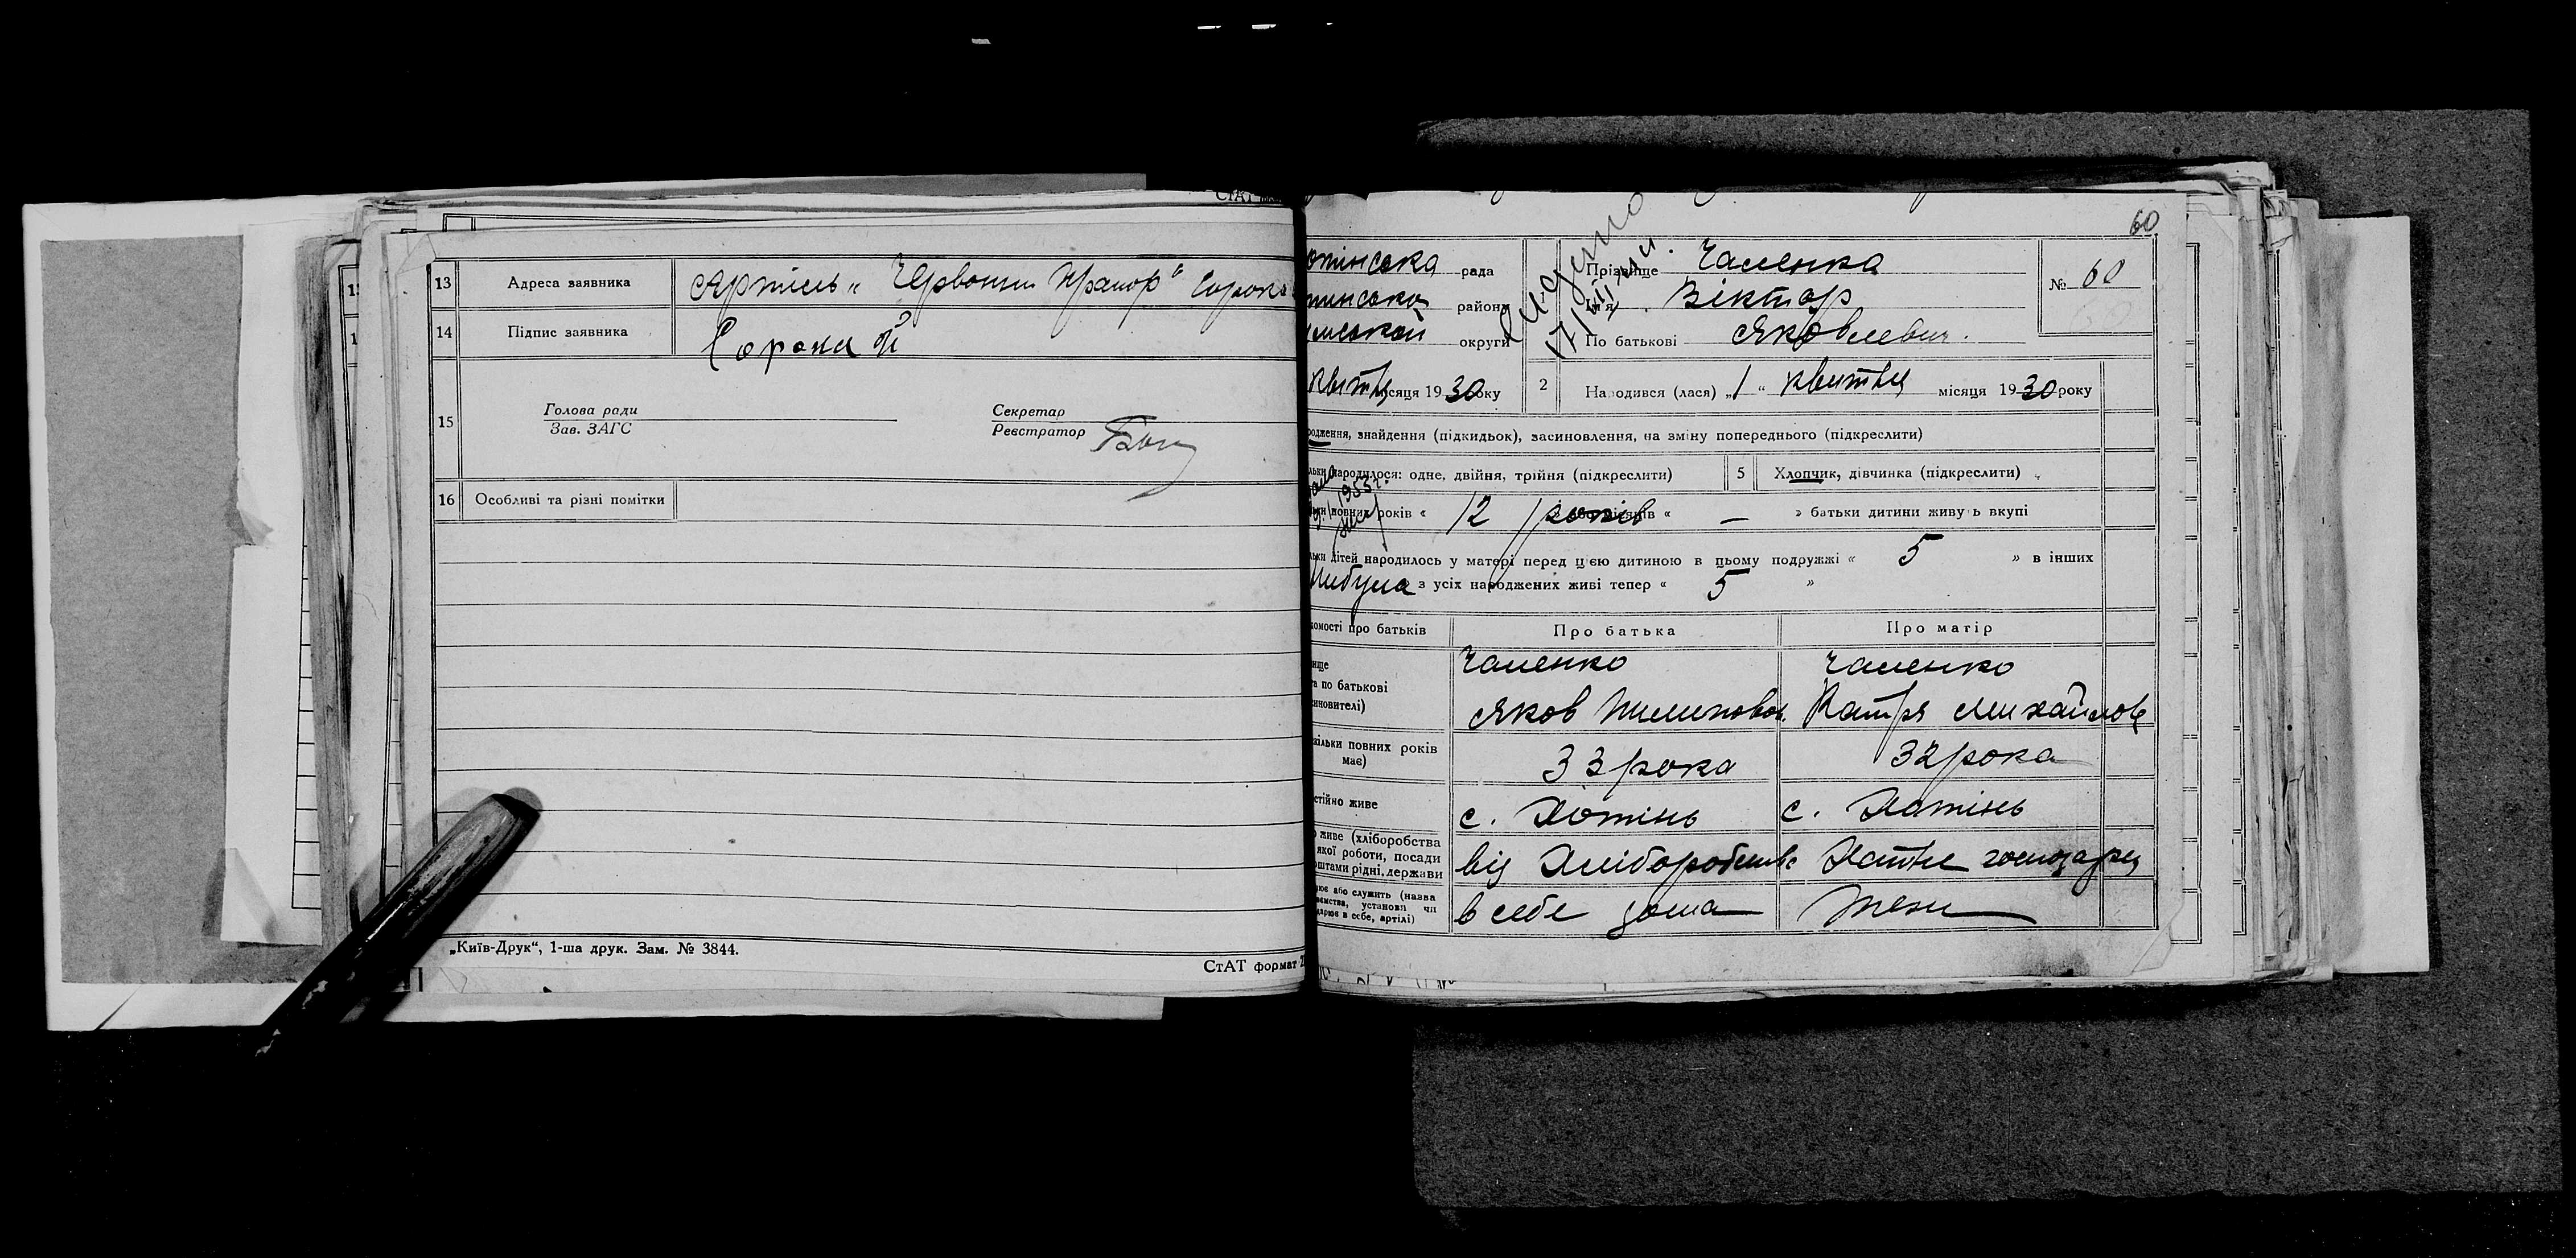 СтАТ
13 Адреса заявника Артіль „Червоний Прапор“ Сорока
14 Підпис заявника Сорока
15 Голова ради
Зав. ЗАГС
Секретар
Реєстратор
16 Особливі та різні помітки
„Київ-Друк“, 1-ша друк. Зам. № 3844.
СтАТ формат
60
отінська рада
тинської району
умської округи
Прізвище Чаленка
м'я Віктор
По батькові Яковлевич.
№ 60
Квітня місяця 1930 оку
2 Народився (лася) „1“ Квитня місяця 1930 року
родження, знайдення (підкидьок), засиновлення, на зміну попереднього (підкреслити)
льки народилося: одне, двійня, трійня (підкреслити)
5 Хлопчик, дівчинка (підкреслити)
1953 г.
льки повних років « 12 років « — » батьки дитини живуть вкупі
льки дітей народилось у матері перед цією дитиною в цьому подружжі « 5 » в інших
з усіх народжених живі тепер « 5 »
домості про батьків Про батька Про матір
ище Чаленко Чаленко
та по батькові
синовителі) Яков Пилипович Катря Михайлов
скільки повних років
має) 33 рока 32 рока
стійно живе с. Хотінь с. Хотінь
живе (хліборобства
якої роботи, посади
оштами рідні, держави від Хліборобства Хатне господарня
ює або служить (назва
ємства, установи чи
дарює в себе, артілі) в себе дома